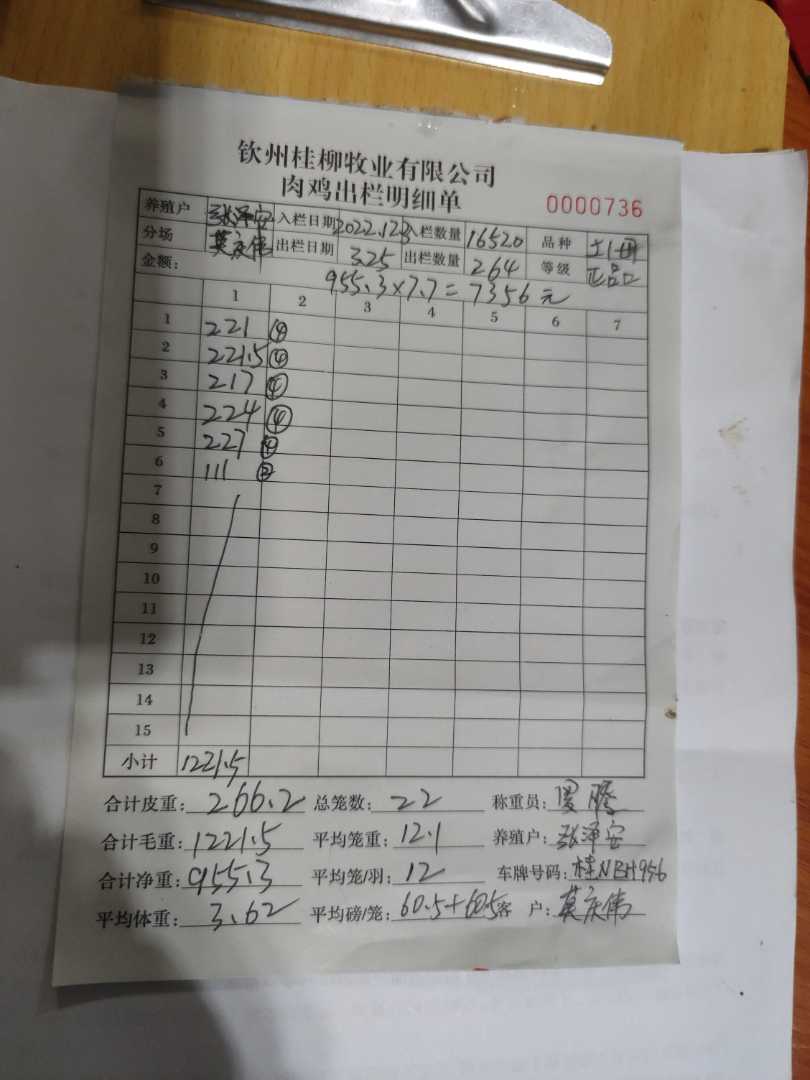 钦州桂柳牧业有限公司
肉鸡出栏明细单
0000736
养殖户 张泽安 入栏日期 2022.12.3 入栏数量 16520 品种
分场 莫庆伟 出栏日期 3.25 出栏数量 264 等级 正品
金额: 955.3×7.7=7356元
1 2 3 4 5 6 7
1 221 ④
2 221.5 ④
3 217 ④
4 224 ④
5 227 ④
6 111 ②
7
8
9
10
11
12
13
14
15
小计 1221.5
合计皮重: 266.2 总笼数: 22 称重员:
合计毛重: 1221.5 平均笼重: 12.1 养殖户: 张泽安
合计净重: 955.3 平均笼/羽: 12 车牌号码: 桂NBH956
平均体重: 3.62 平均磅/笼: 60.5+60.5 客 户: 莫庆伟